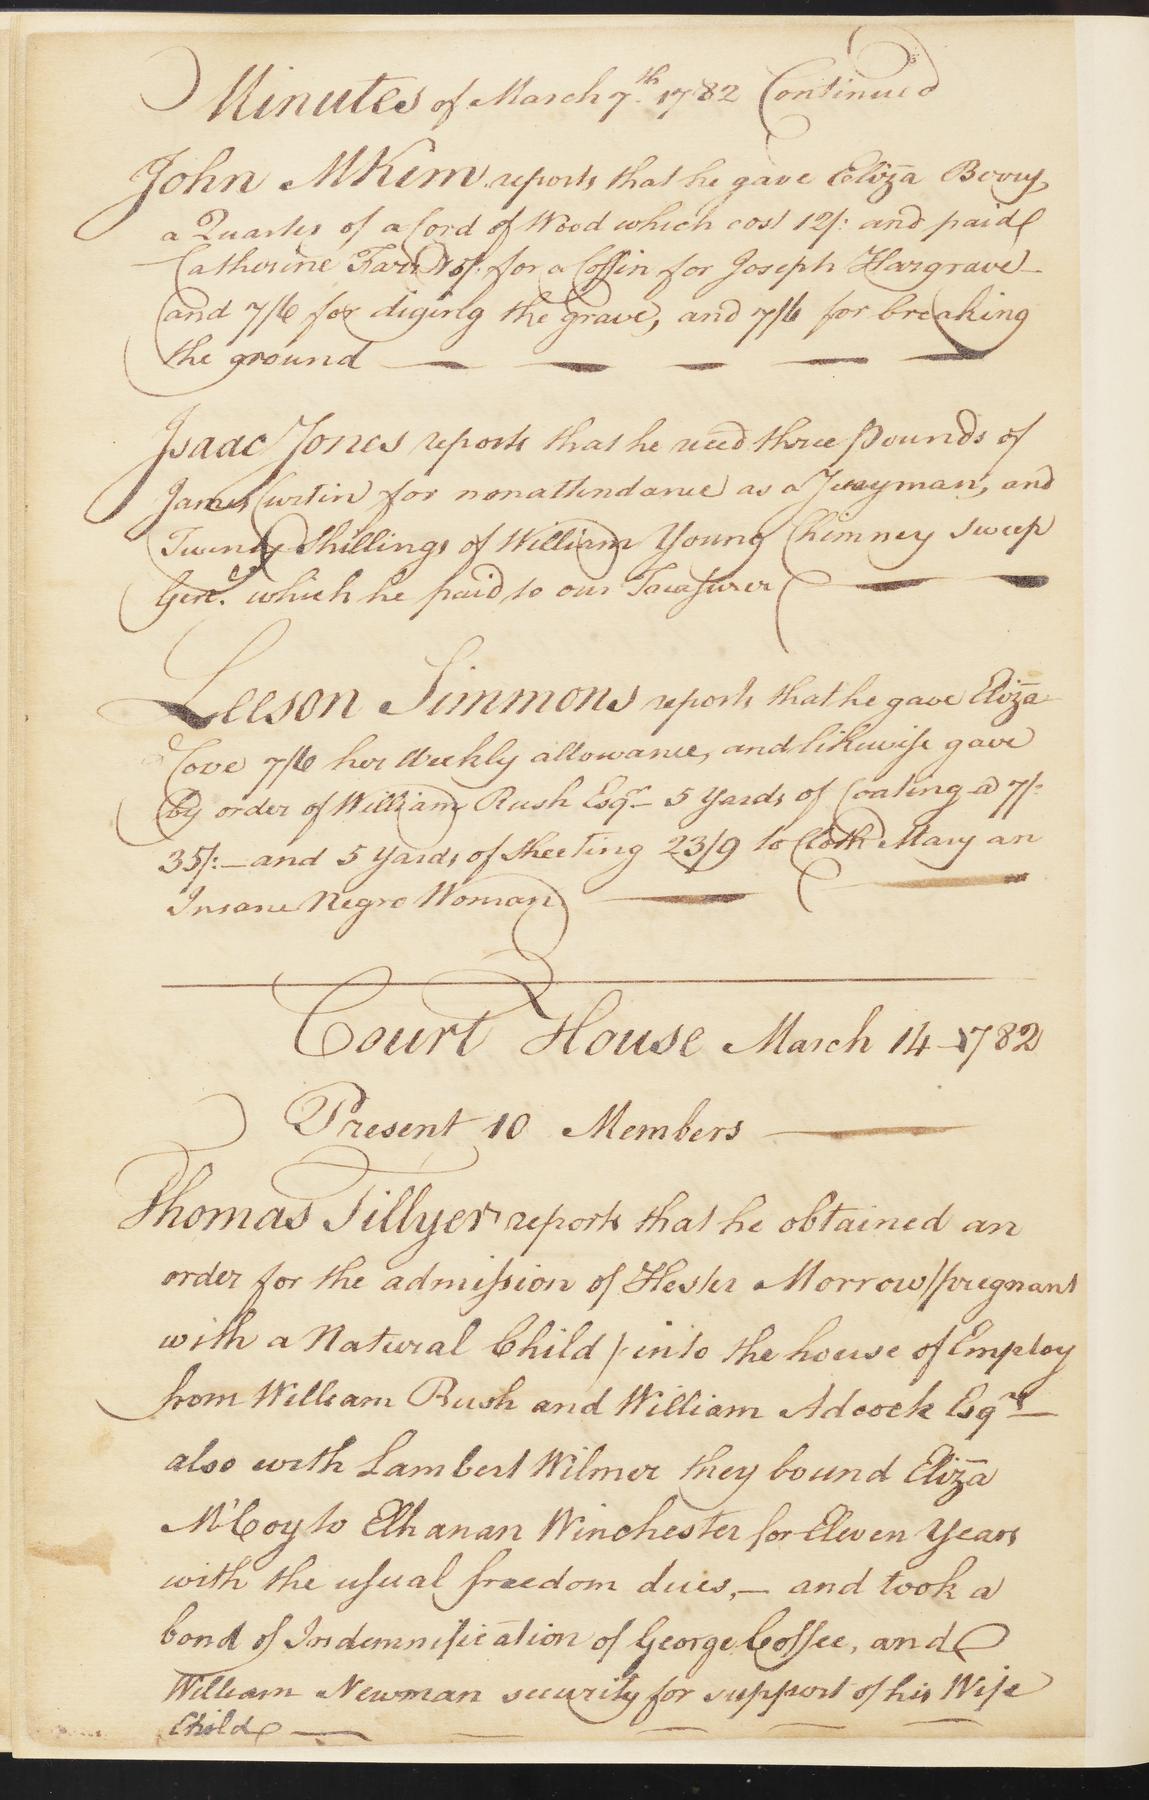 Minutes of March 7.th 1782 Continued
John McKim reports that he gave Eliza Berry
a Quarter of a Cord of Wood which cost 12/: and paid
Catherine 15/. for a Coffin for Joseph Hargrave
and 7/6 for diging the grave, and 7/6 for breaking
the ground
Isaac Jones reports that he reced three Pounds of
James Curtin for nonattendance as a Juryman, and
Twenty Shillings of William Young Chimney Sweep
which he paid to our Treasurer
Leeson Simmons reports that he gave Eliza
Cove 7/6 her Weekly allowance, and likewise gave
by order of William Rush Esqr 5 Yards of Coating @ 7/:
35/: and 5 Yards of Sheeting 23/9 to Cloth Mary an
Insane Negro Woman
Court House March 14 1782
Present 10 Members
Thomas Tillyer reports that he obtained an
order for the admission of Hester Morrow /pregnant
with a Natural Child/ into the house of Employ
from William Rush and William Adcock Esqrs
also with Lambert Wilmer they bound Eliza
McCoy to Elhanan Winchester for Eleven Years
with the usual freedom dues, and took a
bond of Indemnification of George Coffee, and
William Newman security for support of his Wife
Child